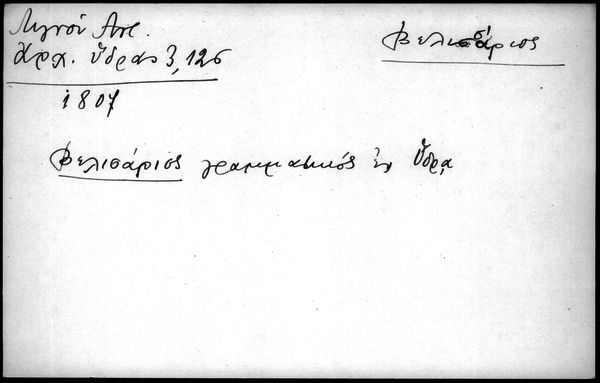 Λιγνού Αντ.
Αρχ. Ὕδρας 3, 126
Βελισάριος
1807
Βελισάριος γραμματικός ἐν Ὕδρᾳ